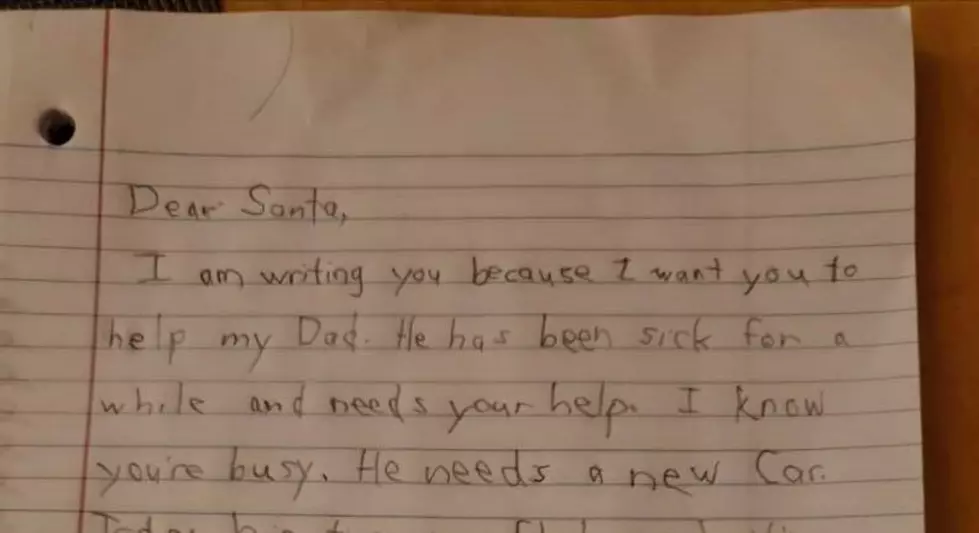 Dear Santa,
I am writing you because I want you to
help my Dad. He has been sick for a
while and needs your help. I know
you're busy. He needs a new Car.